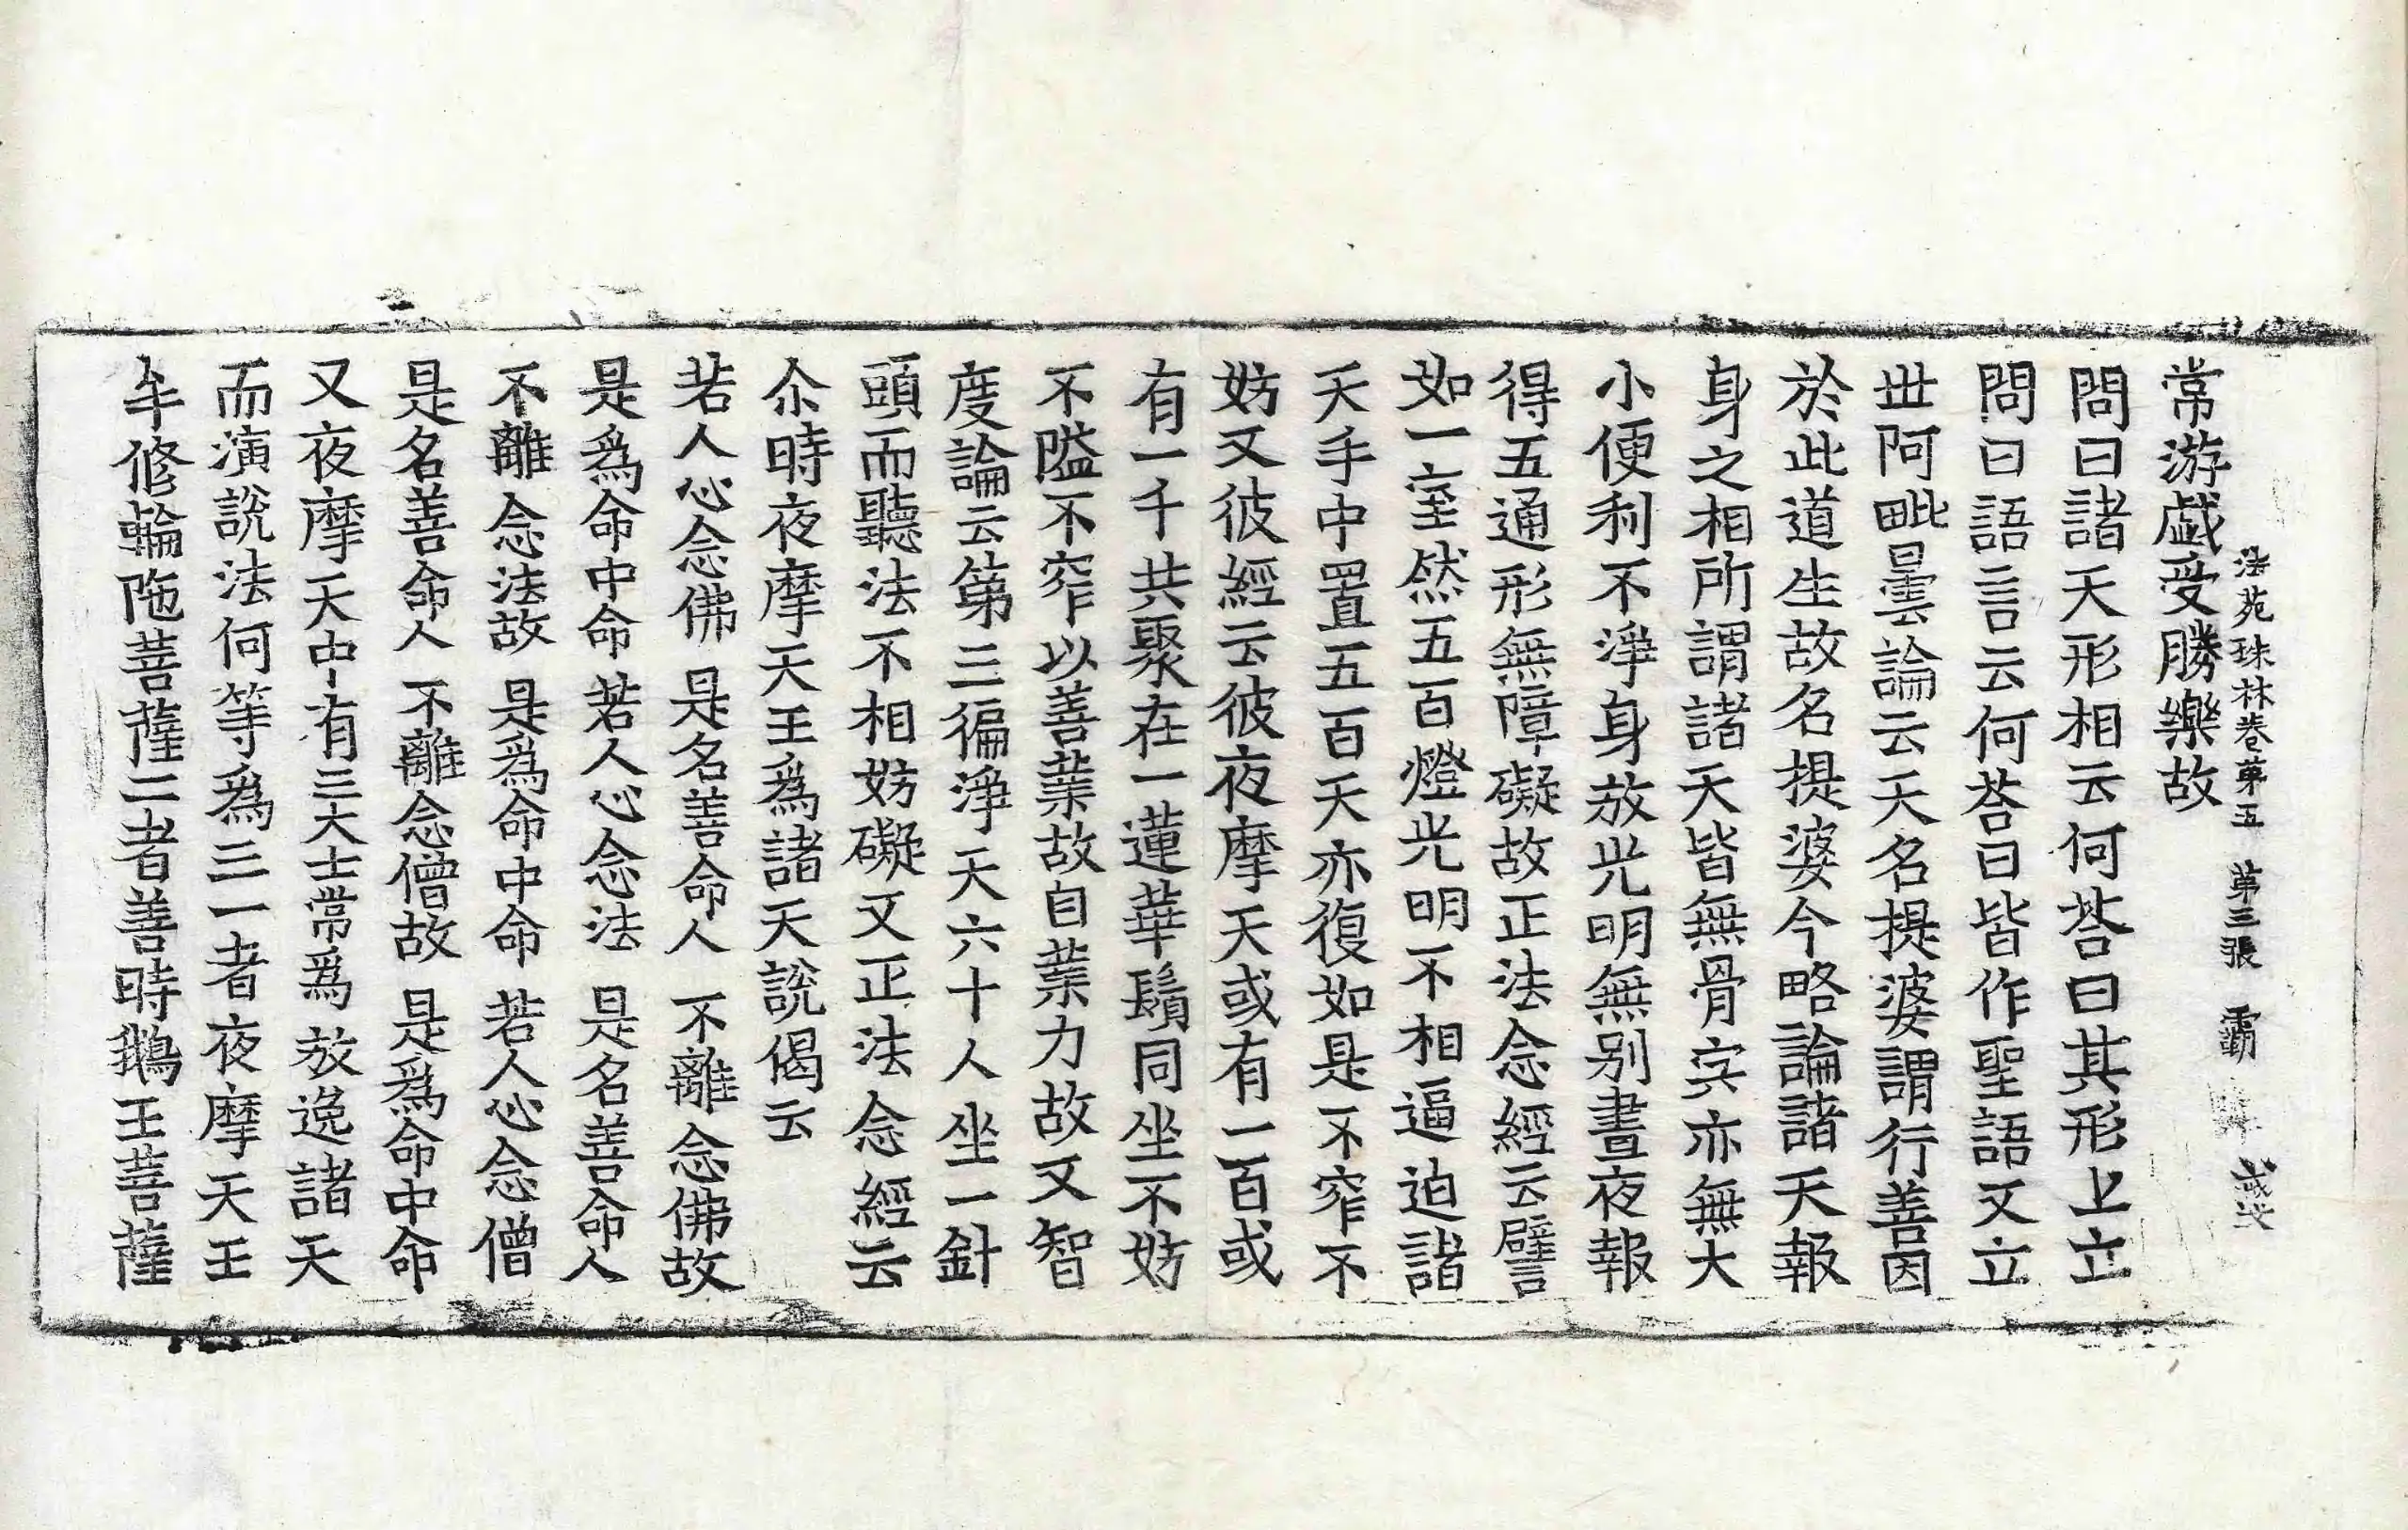 常游戲受勝樂故
法苑珠林卷第五 第三張 霸
問曰諸天形相云何荅曰其形上立
問曰語言云何荅曰皆作聖語又立
丗阿毗曇論云天名提婆謂行善因
於此道生故名提婆今略論諸天報
身之相所謂諸天皆無骨宍亦無大
小便利不淨身放光明無别晝夜報
得五通形無障礙故正法念經云譬
如一室然五百燈光明不相逼迫諸
天手中置五百天亦復如是不窄不
妨又彼經云彼夜摩天或有一百或
有一千共聚在一蓮華鬚同坐不妨
不隘不窄以善業故自業力故又智
度論云第三徧淨天六十人坐一針
頭而聽法不相妨礙又正法念經云
尒時夜摩天王爲諸天說偈云
若人心念佛 是名善命人 不離念佛故
是爲命中命 若人心念法 是名善命人
不離念法故 是爲命中命 若人心念僧
是名善命人 不離念僧故 是爲命中命
又夜摩天中有三大士常爲放逸諸天
而演說法何等爲三一者夜摩天王
牟修輪陁菩薩二者善時鵝王菩薩